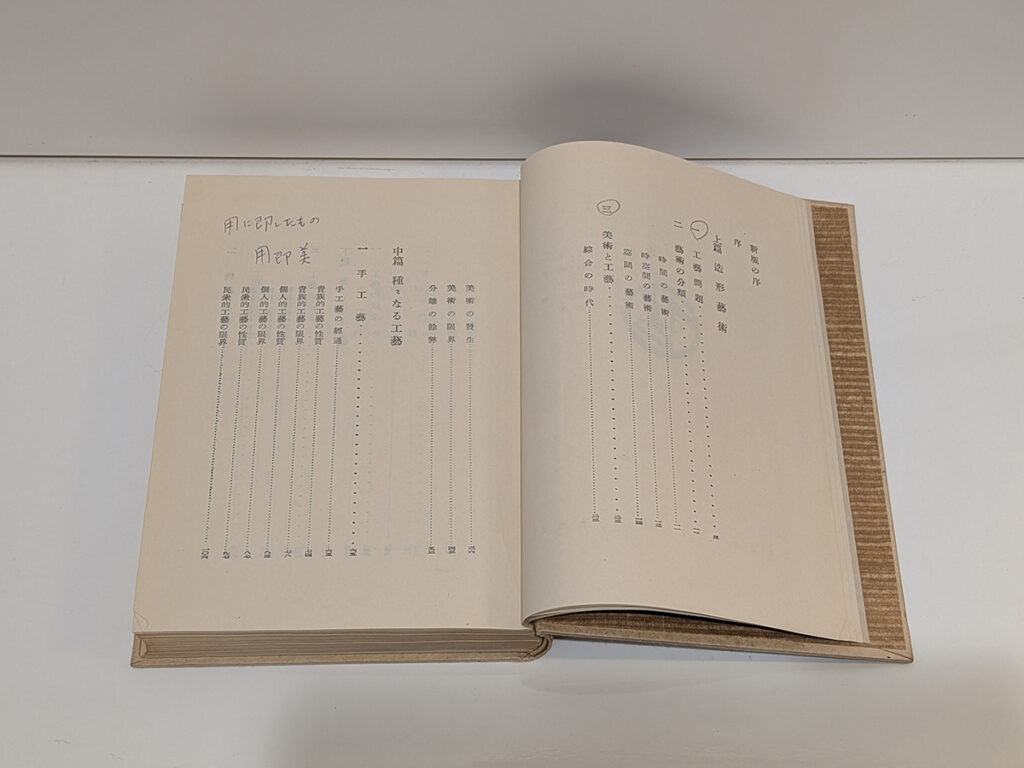 新版の序
序
上篇 造形藝術
一 工藝問題
二 藝術の分類
時間の藝術
時空間の藝術
空間の藝術
三 美術と工藝
綜合の時代
美術の發生
美術の限界
分離の餘弊
中篇 種々なる工藝
一 手工藝
手工藝の經過
貴族的工藝の性質
貴族的工藝の限界
個人的工藝の性質
個人的工藝の限界
民衆的工藝の性質
民衆的工藝の限界
用に即したもの
用即美